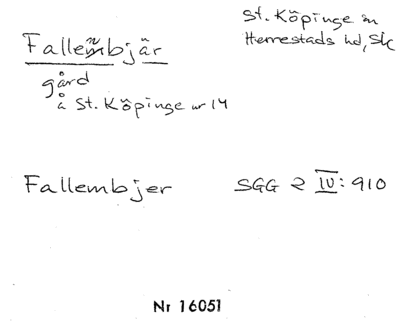 St. Köpinge sn
Herrestads hd, Sk
Fallenbjär
gård
å St. Köpinge nr 14
Fallembjer SGG 2 IV: 910
Nr 16051